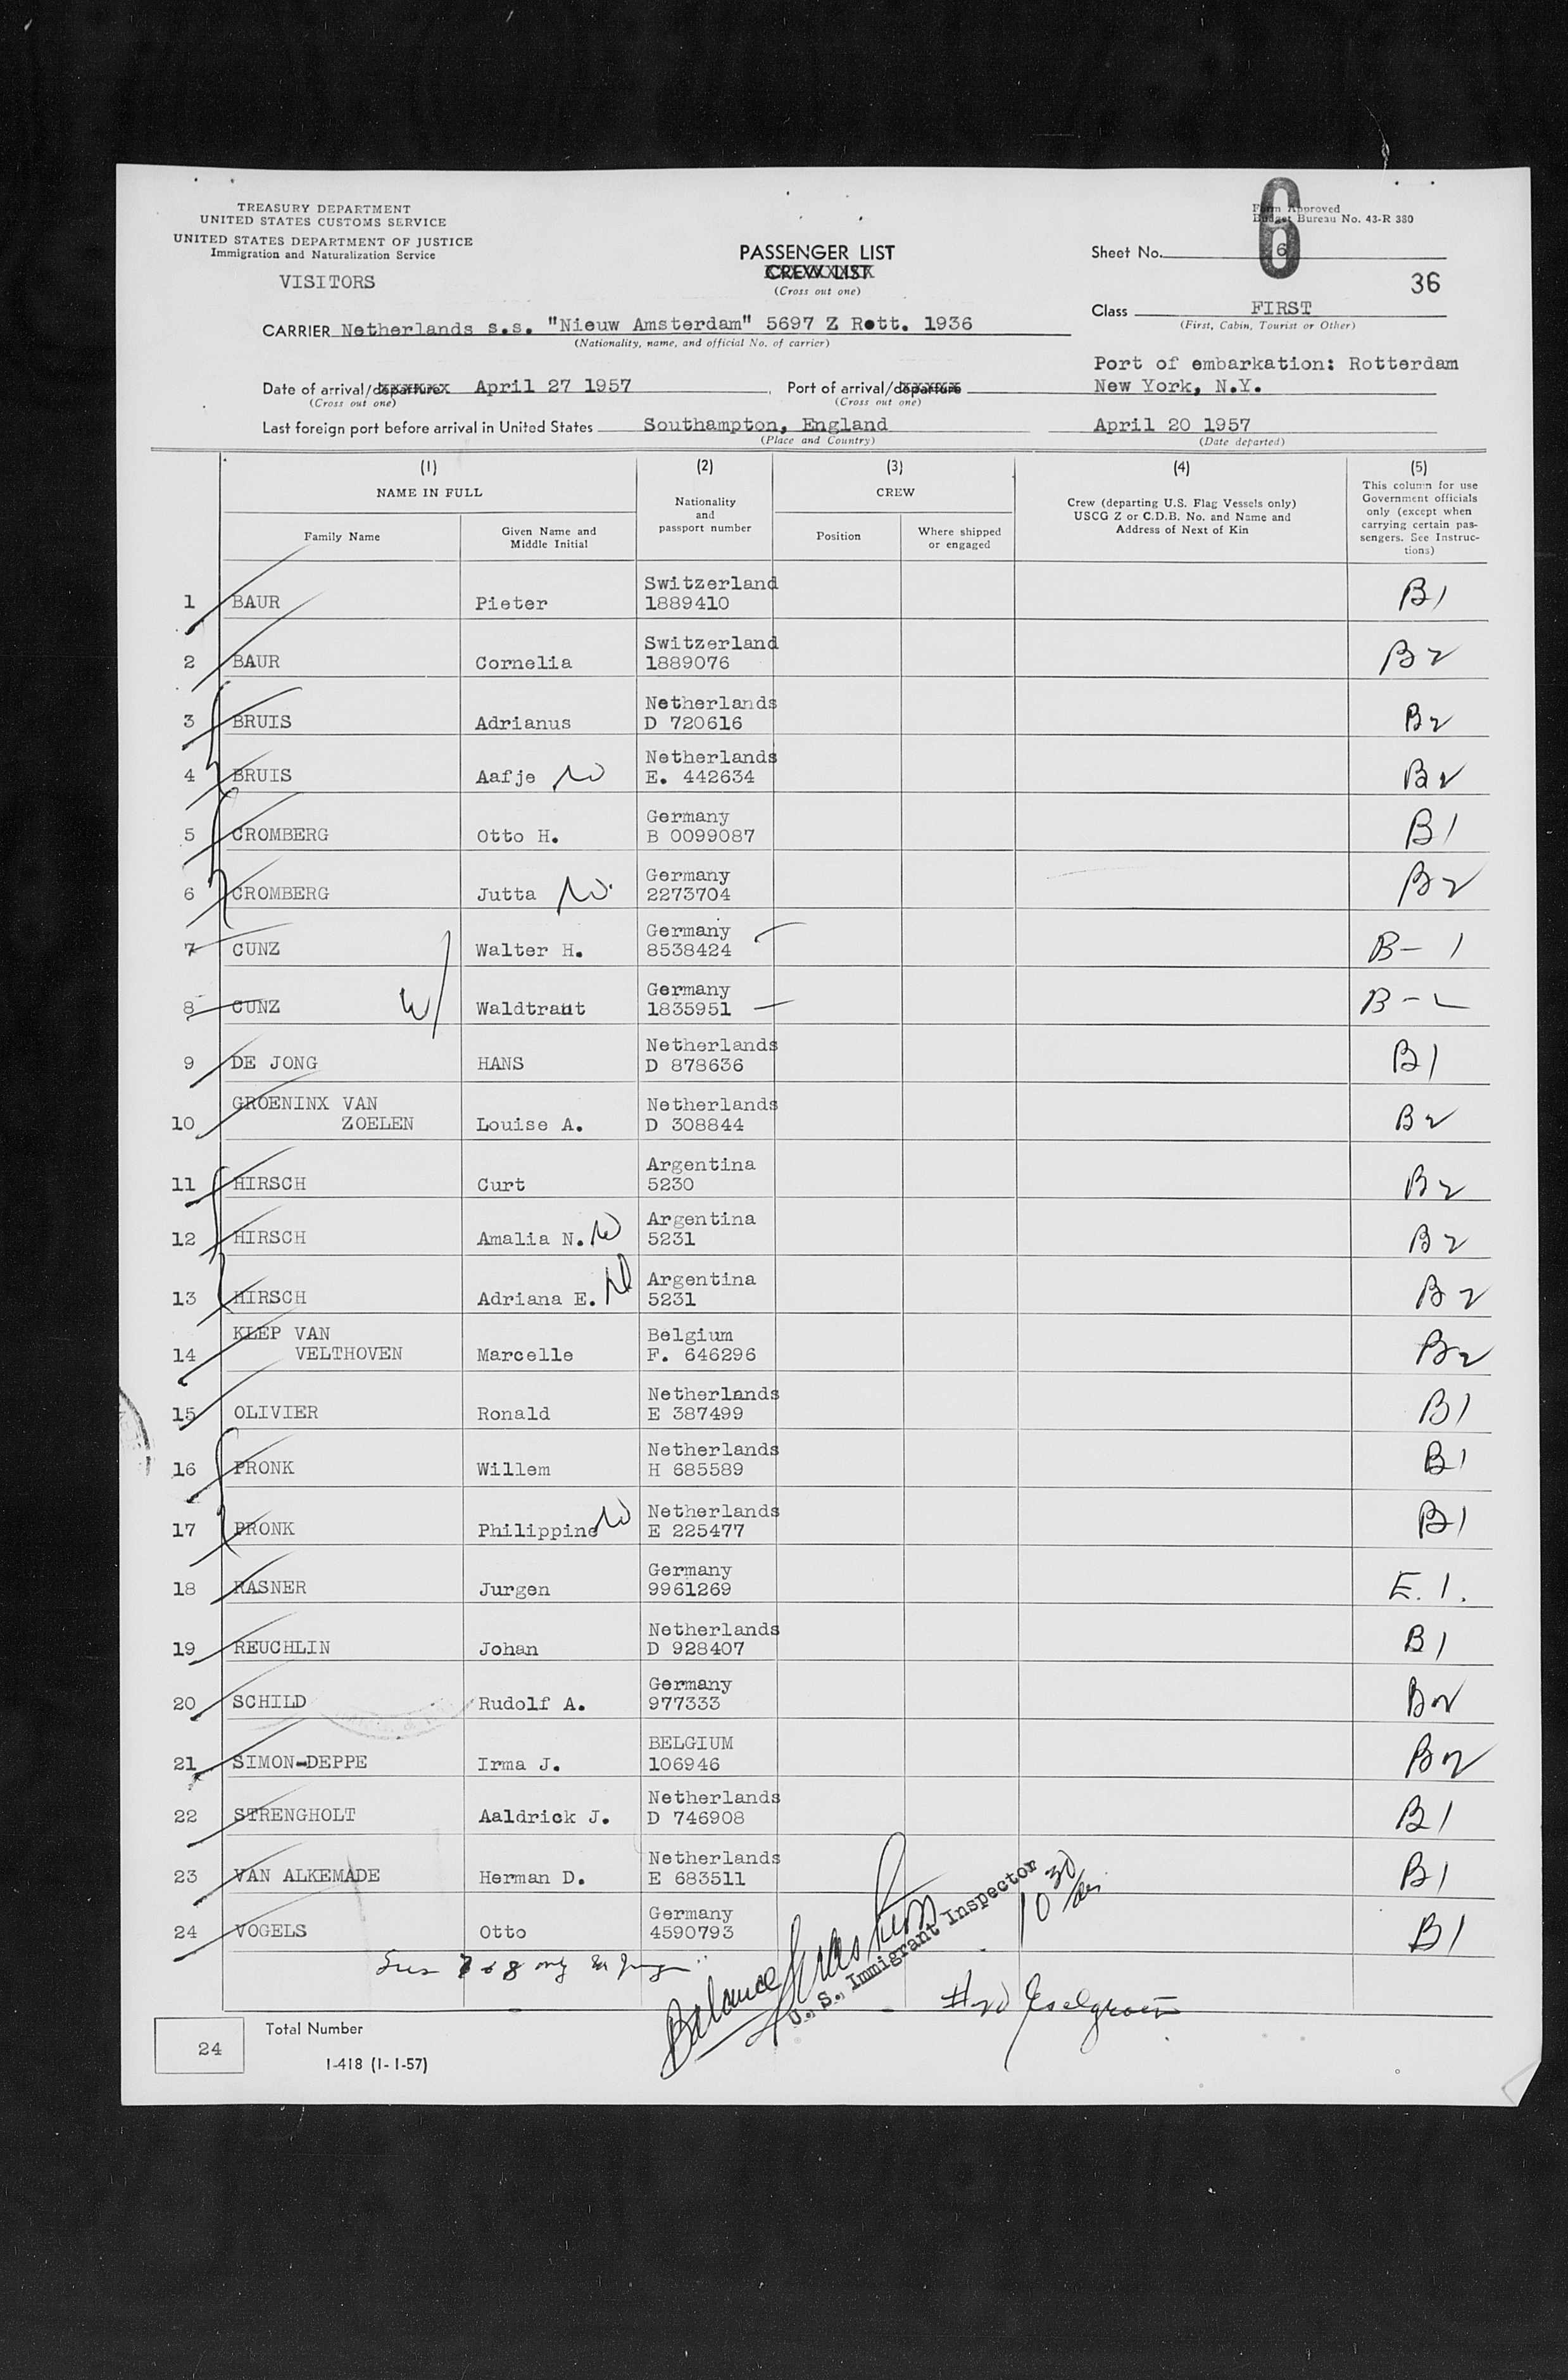 TREASURY DEPARTMENT
UNITED STATES CUSTOMS SERVICE
UNITED STATES DEPARTMENT OF JUSTICE
Immigration and Naturalization Service
VISITORS
PASSENGER LIST
CREW LIST
(Cross out one)
Form Approved
Budget Bureau No. 43-R 380
6
Sheet No. 6
36
Class FIRST
(First, Cabin, Tourist or Other)
CARRIER Netherlands s.s. "Nieuw Amsterdam" 5697 Z Rott. 1936
(Nationality, name, and official No. of carrier)
Port of embarkation: Rotterdam
Date of arrival/departure April 27 1957, Port of arrival/departure New York, N.Y.
(Cross out one) (Cross out one)
Last foreign port before arrival in United States Southampton, England April 20 1957
(Place and Country) (Date departed)
(1) (2) (3) (4) (5)
NAME IN FULL
Family Name
Given Name and Middle Initial
Nationality and passport number
CREW
Position
Where shipped or engaged
Crew (departing U.S. Flag Vessels only)
USCG Z or C.D.B. No. and Name and
Address of Next of Kin
This column for use
Government officials
only (except when
carrying certain pas-
sengers. See Instruc-
tions)
1 BAUR Pieter Switzerland 1889410 B1
2 BAUR Cornelia Switzerland 1889076 B2
3 BRUIS Adrianus Netherlands D 720616 B2
4 BRUIS Aafje W Netherlands E. 442634 B2
5 CROMBERG Otto H. Germany B 0099087 B1
6 CROMBERG Jutta W Germany 2273704 B2
7 CUNZ Walter H. Germany 8538424 B-1
8 CUNZ W Waldtraut Germany 1835951 B-2
9 DE JONG HANS Netherlands D 878636 B1
10 GROENINX VAN ZOELEN Louise A. Netherlands D 308844 B2
11 HIRSCH Curt Argentina 5230 B2
12 HIRSCH Amalia N. W Argentina 5231 B2
13 HIRSCH Adriana E. Argentina 5231 B2
14 KLEP VAN VELTHOVEN Marcelle Belgium F. 646296 B2
15 OLIVIER Ronald Netherlands E 387499 B1
16 PRONK Willem Netherlands H 685589 B1
17 PRONK Philippine W Netherlands E 225477 B1
18 RASNER Jurgen Germany 9961269 E.1.
19 REUCHLIN Johan Netherlands D 928407 B1
20 SCHILD Rudolf A. Germany 977333 B2
21 SIMON-DEPPE Irma J. BELGIUM 106946 B2
22 STRENGHOLT Aaldrick J. Netherlands D 746908 B1
23 VAN ALKEMADE Herman D. Netherlands E 683511 B1
24 VOGELS Otto Germany 4590793 B1
Balance
U. S. Immigrant Inspector
24 Total Number
I-418 (1-1-57)